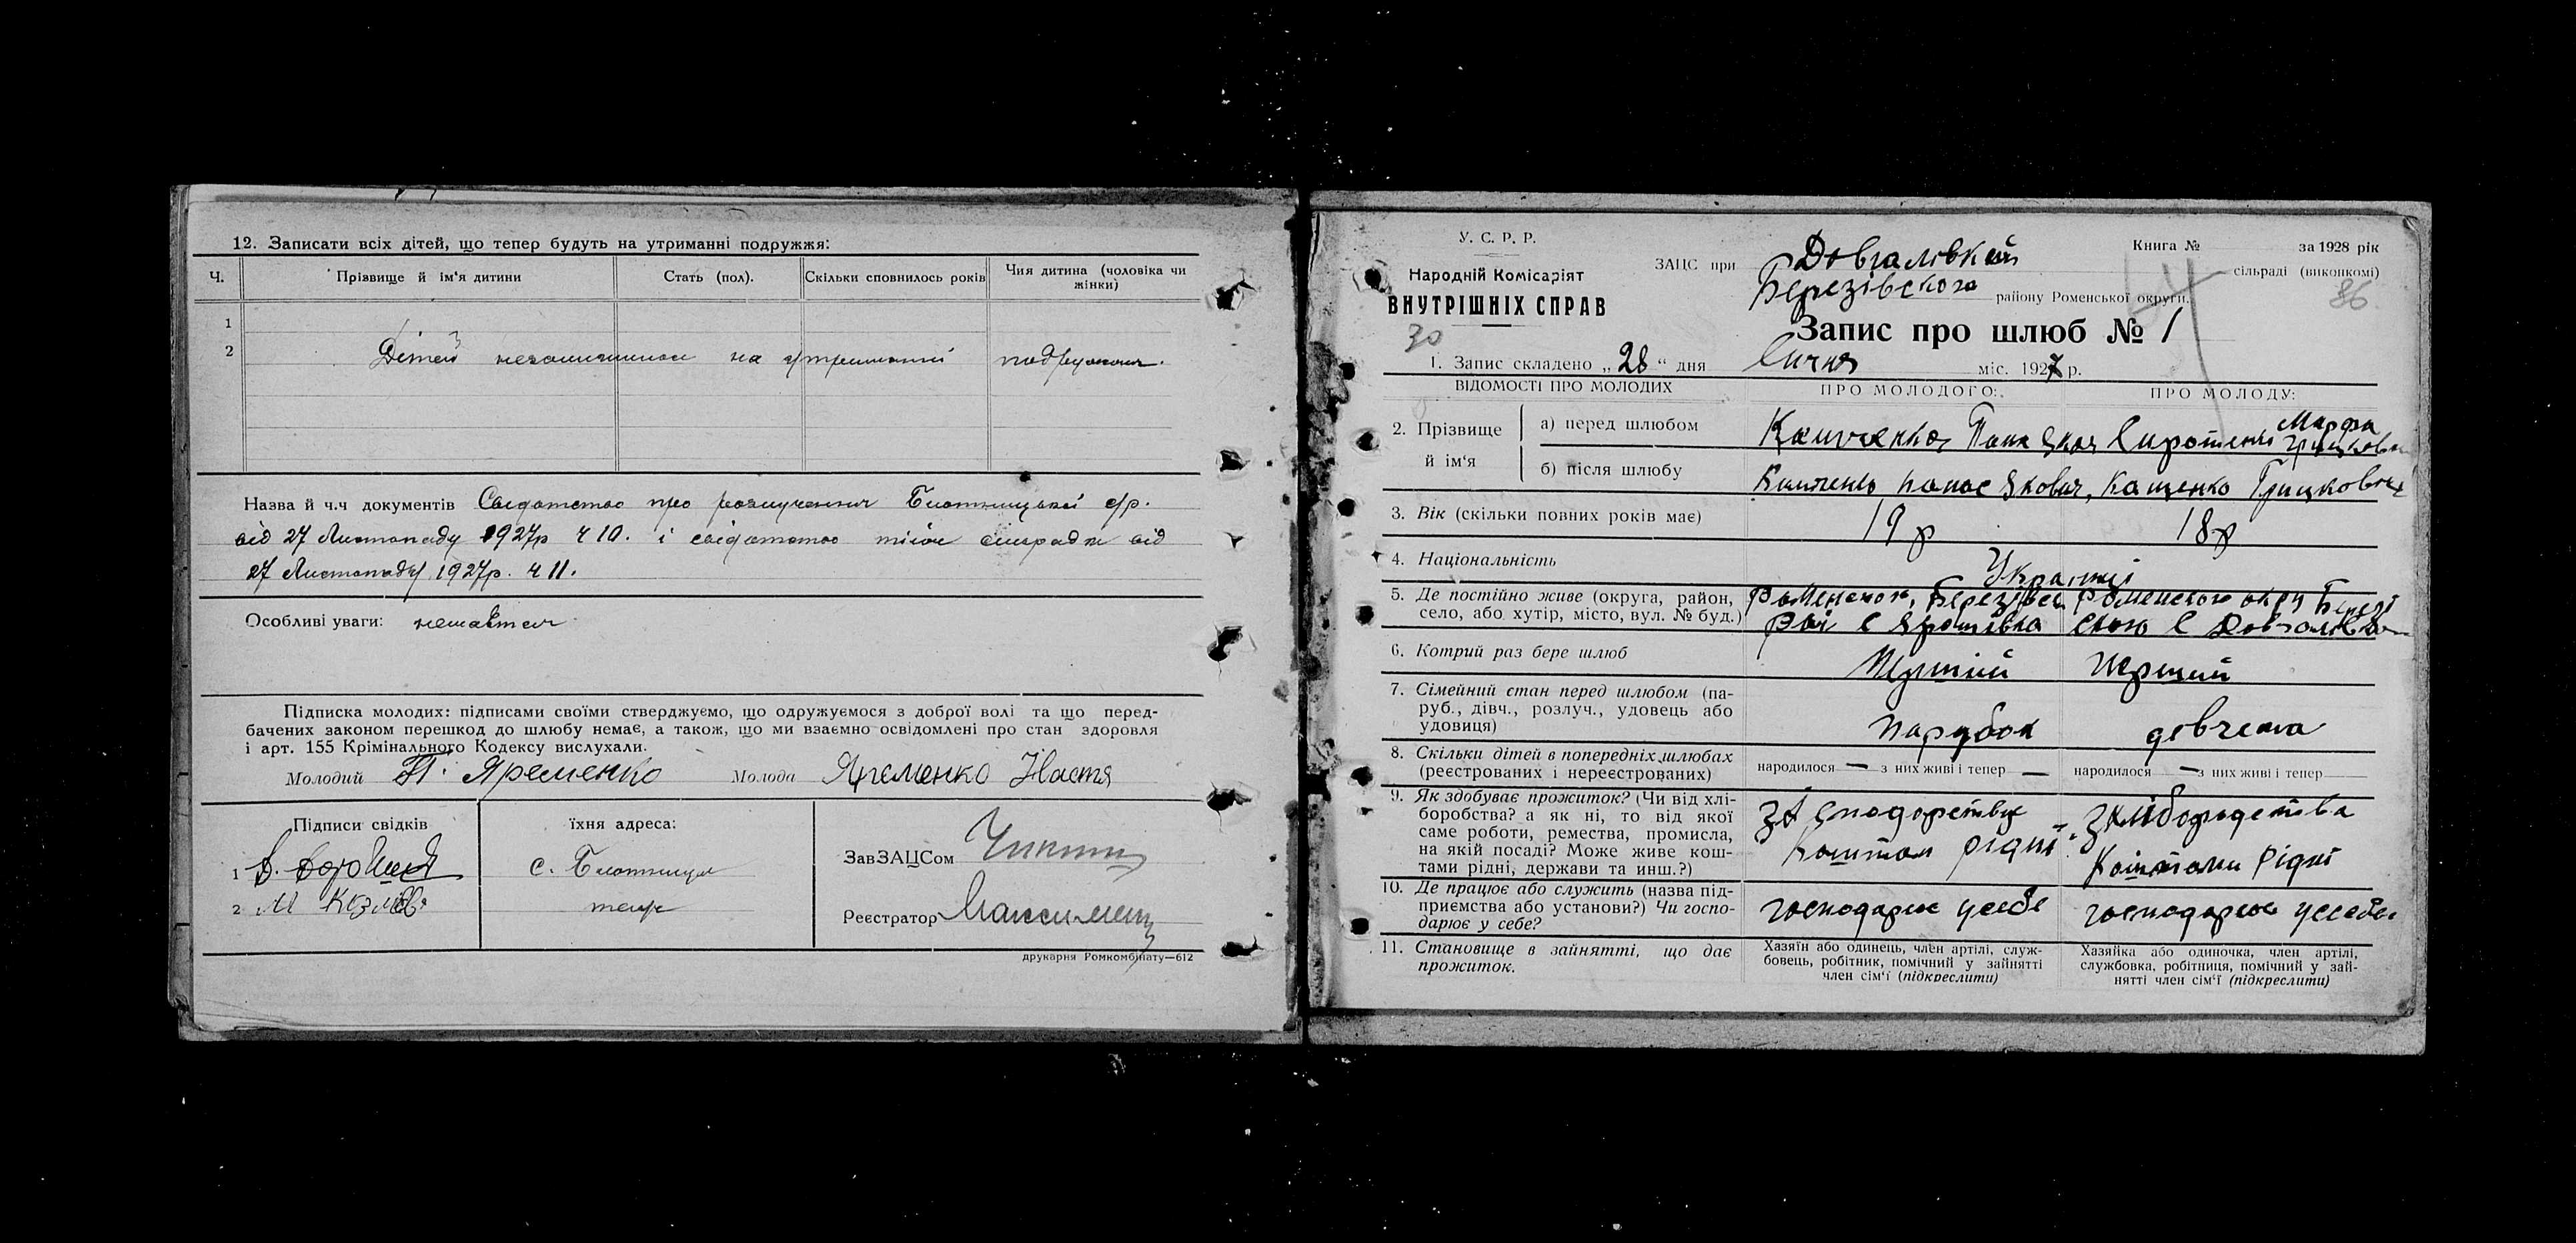 12. Записати всіх дітей, що тепер будуть на утриманні подружжя:
Ч. Прізвище й ім'я дитини Стать (пол). Скільки сповнилось років Чия дитина (чоловіка чи жінки)
1
2 Дітей на утриманні подружжя.
Назва й ч.ч документів Свідотство про розлучення Блотницької с/р.
від 27 Листопаду 1927р Ч 10. і свідотство тією сільради від
27 Листопаду 1927р. Ч 11.
Особливі уваги: немаєтся
Підписка молодих: підписами своїми стверджуємо, що одружуємося з доброї волі та що перед-
бачених законом перешкод до шлюбу немає, а також, що ми взаємно освідомлені про стан здоровля
і арт. 155 Крімінального Кодексу вислухали.
Молодий П. Яременко Молода Яременко Настя
Підписи свідків їхня адреса:
1 с. Блотниця
2 М Козлов теж
ЗавЗАЦСом
Реєстратор
друкарня Ромкомбінату—612
У. С. Р. Р.
Народній Комісаріят
ВНУТРІШНІХ СПРАВ
30
ЗАЦС при Довгалівкий
Книга № за 1928 рік
сільраді (виконкомі)
Березівского району Роменської округи.
86
Запис про шлюб № 1
1. Запис складено „28“ дня Сичня міс. 1927 р.
ВІДОМОСТІ ПРО МОЛОДИХ ПРО МОЛОДОГО: ПРО МОЛОДУ:
2. Прізвище й ім'я
а) перед шлюбом Марфа
б) після шлюбу Панас Яковч, Кащенко Грицковна
3. Вік (скільки повних років має) 19 р 18 р
4. Національність Українці
5. Де постійно живе (округа, район, Роменского, Березівск Роменского окру Березі
село, або хутір, місто, вул. № буд.) рай с Ярошівка ского с Довгалівка
6. Котрий раз бере шлюб Перший Перший
7. Сімейний стан перед шлюбом (па-
руб., дівч., розлуч., удовець або
удовиця) парубок девчена
8. Скільки дітей в попередніх шлюбах
(реєстрованих і нереєстрованих) народилося — з них живі і тепер — народилося — з них живі і тепер
9. Як здобуває прожиток? (Чи від хлі-
боробства? а як ні, то від якої
саме роботи, ремества, промисла,
на якій посаді? Може живе кош-
тами рідні, держави та инш.?)
Коштом рідні
Коштами рідні
10. Де працює або служить (назва під-
приємства або установи?) Чи госпо-
дарює у себе? господарює усебе господарює усебе
11. Становище в зайнятті, що дає
прожиток.
Хазяїн або одинець, член артілі, служ-
бовець, робітник, помічний у зайнятті
член сім'ї (підкреслити)
Хазяйка або одиночка, член артілі,
службовка, робітниця, помічний у зай-
нятті член сім'ї (підкреслити)